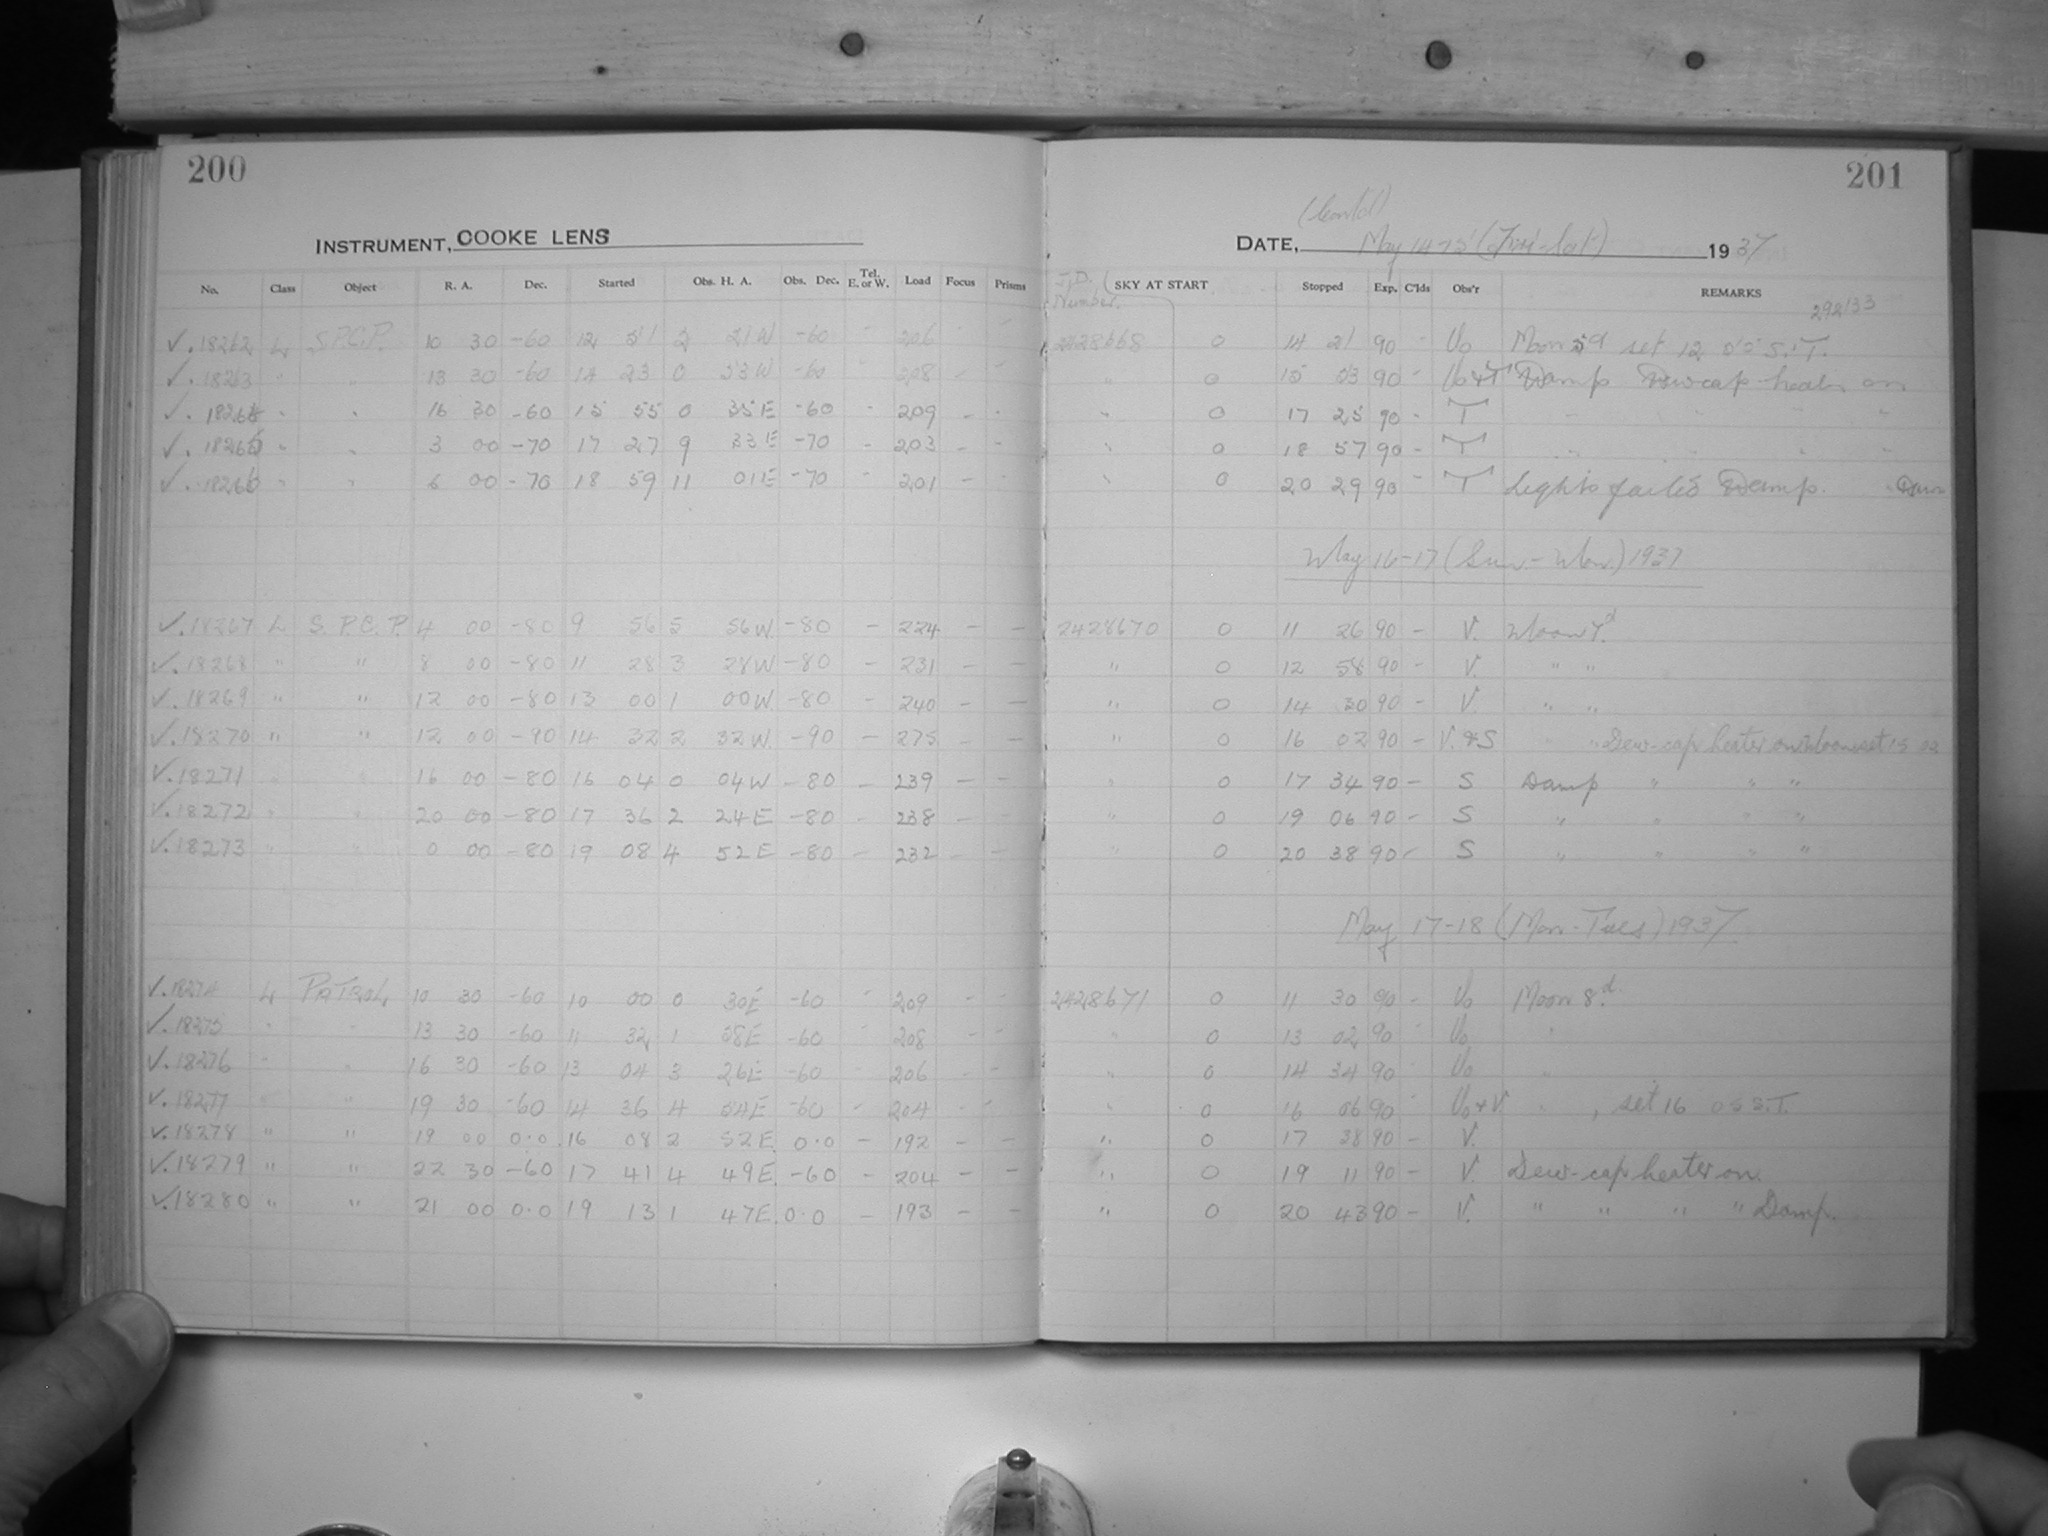 200
INSTRUMENT, COOKE LENS
No. Class Object R. A. Dec. Started Obs. H. A. Obs. Dec. Tel. E. or W. Load Focus Prisms
✓. 18262 L S.P.C.P. 10 30 -60 12 51 2 21W -60 - 206 - -
✓. 18263 " " 13 30 -60 14 23 0 53W -60 - 208 - -
✓. 18264 " " 16 30 -60 15 55 0 35E -60 - 209 - -
✓. 18265 " " 3 00 -70 17 27 9 33E -70 - 203 - -
✓. 18266 " " 6 00 -70 18 59 11 01E -70 - 201 - -
✓. 18267 L S. P.C.P. 4 00 -80 9 56 5 56W. -80 - 224 - -
✓. 18268 " " 8 00 -80 11 28 3 28W -80 - 231 - -
✓. 18269 " " 12 00 -80 13 00 1 00W. -80 - 240 - -
✓. 18270 " " 12 00 -90 14 32 2 32W. -90 - 275 - -
✓. 18271 " " 16 00 -80 16 04 0 04W -80 - 239 - -
✓. 18272 " " 20 00 -80 17 36 2 24E -80 - 238 - -
✓. 18273 " " 0 00 -80 19 08 4 52E -80 - 232 - -
✓. 18274 L PATROL 10 30 -60 10 00 0 30E -60 - 209 - -
✓. 18275 " " 13 30 -60 11 32 1 58E -60 208 - -
✓. 18276 " " 16 30 -60 13 04 3 26E -60 - 206 - -
✓. 18277 " " 19 30 -60 14 36 4 54E -60 - 204 - -
✓. 18278 " " 19 00 0.0 16 08 2 52E. 0.0 - 192 - -
✓. 18279 " " 22 30 -60 17 41 4 49E. -60 - 204 - -
✓. 18280 " " 21 00 0.0 19 13 1 47E. 0.0 - 193 - -
201
(Cont'd)
DATE, May 14-15 (Fri-Sat) 1937
J.D. Number. SKY AT START Stopped Exp. C'lds Obs'r REMARKS
292133
2428668 0 14 21 90 - Uo Moon 5d set 12 05 S.T.
" 0 15 53 90 - Uo+T Damp Dewcap heater on
" 0 17 25 90 - T " " " "
" 0 18 57 90 - T " " " "
" 0 20 29 90 - T Lights failed Damp. Dawn
May 16-17 (Sun-Mon.) 1937
2428670 0 11 26 90 - V. Moon 7.d
" 0 12 58 90 - V. " "
" 0 14 30 90 - V. " "
" 0 16 02 90 - V.+S " " Dew-cap heater on Moon set 15 02
" 0 17 34 90 - S Damp " " "
" 0 19 06 90 - S " " " "
" 0 20 38 90 - S " " " "
May 17-18 (Mon-Tues) 1937
2428671 0 11 30 90 - Uo Moon 8.d
" 0 13 02 90 - Uo "
" 0 14 34 90 - Uo "
" 0 16 06 90 - Uo+V " , set 16 05 S.T.
" 0 17 38 90 - V.
" 0 19 11 90 - V. Dew-cap heater on.
" 0 20 43 90 - V. " " " " Damp.